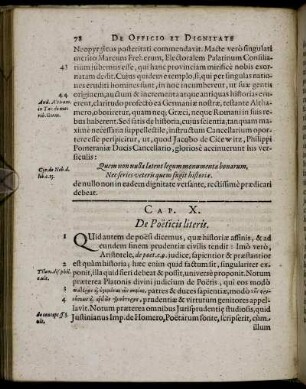 78 DE OFFICIO ET DIGNITATE
Neopyrgicus posteritati commendavit. Macte verò singulari
merito Marcum Freherum, Electoralem Palatinum Consilia-
rium habemus esse, qui hanc provinciam mirificè nobis exor-
natam dedit. Cujus quidem exemplo, si, qui per singulas natio-
nes eruditi homines sunt, in hoc incumberent, ut suæ gentis
originem, ac incrementa magna antiquæ historiæ eruerent,
claritudo profectò ea Germaniæ nostræ, testante Altha-
mero, oboriretur, quantam neq; Græci, neque Romani in suis re-
bus haberent. Sed satis de historia, cujus scientia, tanquam ma-
ximè necessaria suppellectile, instructum Cancellarium opor-
tere esse perspicitur, ut, quod Jacobo de Citzewitz, Philippi
Pomeraniæ Ducis Cancellario, gloriosè accinuerunt his versi-
culis:
Quem non nulla latent legum monumenta bonarum,
Nec series veteris quem fugit historiæ.
de nullo non in eadem dignitate versante, rectissimè prædicari
debeat.
CAP. X.
De Poëticis literis.
1 Quid antem de poësi dicemus, quæ historiæ affinis, & ad
eundem finem prudentiæ civilis tendit? Imò verò,
Aristotele, de poët. c. 9. judice, sapientior & præstantior
est quàm historia; hæc enim quod factum sit, singulariter ex-
ponit, illa quid fieri debeat & possit, universè proponit. Notum
præterea Platonis divini judicium de Poëtis, qui eos modò
patres & duces sapientiæ, modò
prudentiæ & virtutum genitores appel-
lavit. Notum præterea omnibus Jurisprudentiæ studiosis, quid
Justinianus Imp. de Homero, Poëtarum fonte, scripserit, cum